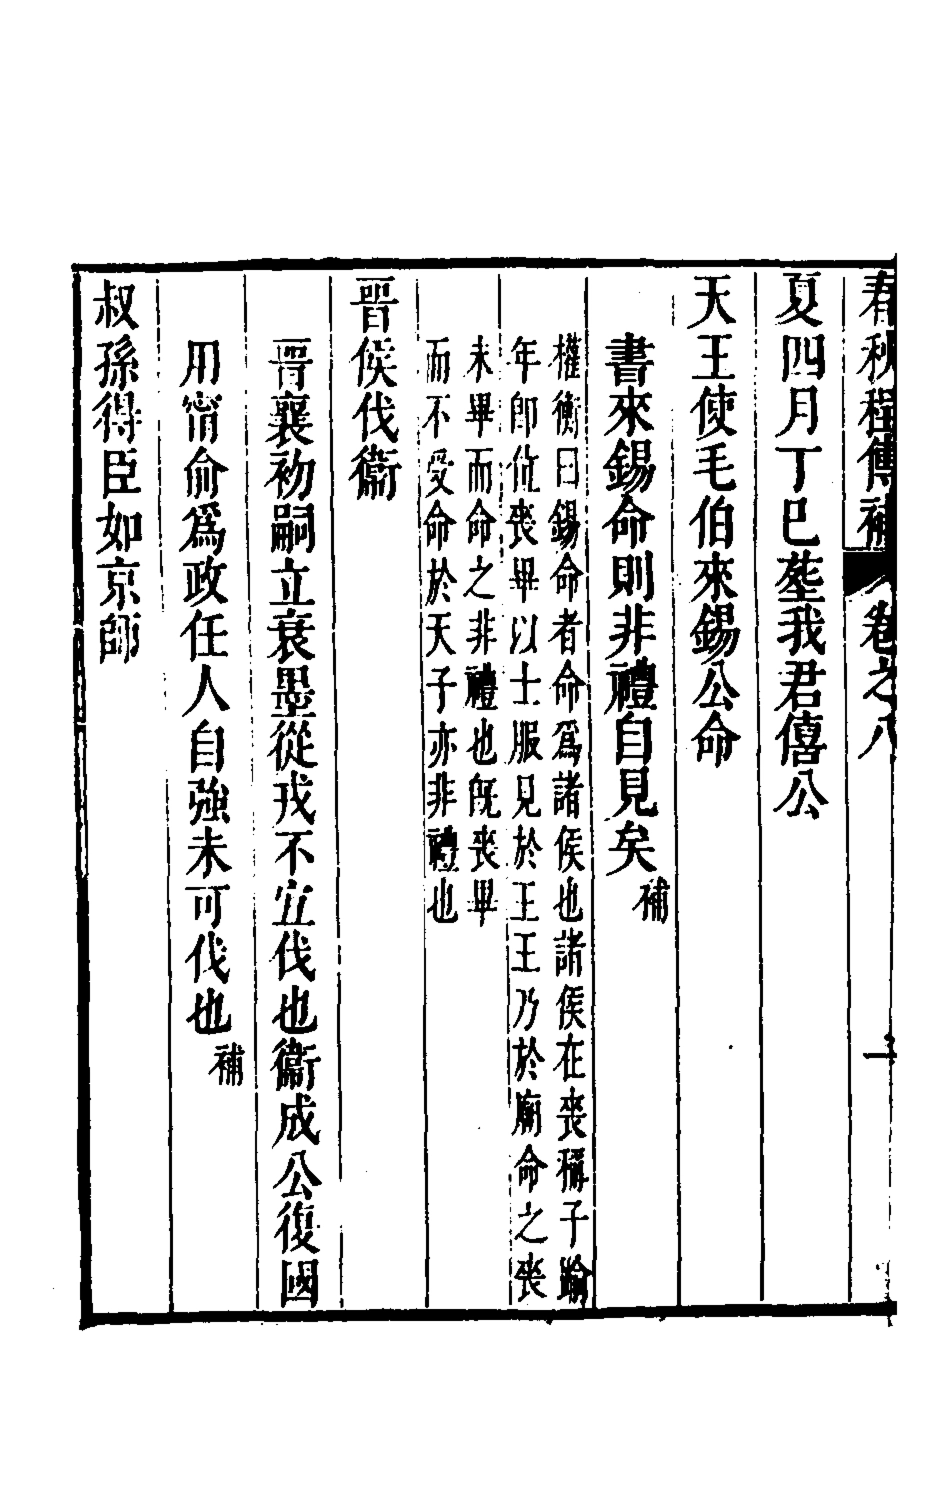 春秋程傳補 卷之八
夏四月丁巳塟我君僖公
天王使毛伯來錫公命
書來錫命則非禮自見矣補
權衡曰錫命者命爲諸侯也諸侯在喪稱子踰
年卽位喪畢以士服見於王王乃於廟命之喪
未畢而命之非禮也旣喪畢
而不受命於天子亦非禮也
晋侯伐衞
晋襄初嗣立衰墨從戎不宜伐也衞成公復國
用甯俞爲政任人自強未可伐也補
叔孫得臣如京師